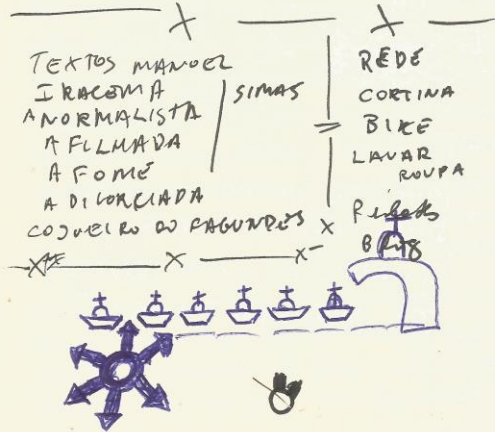 TEXTOS MANOEL
IRACEMA
A NORMALISTA
A FILHADA
A FOME
A DIVORCIADA
COQUEIRO DO FAGUNDES
SIMAS
REDE
CORTINA
BIKE
LAVAR
ROUPA